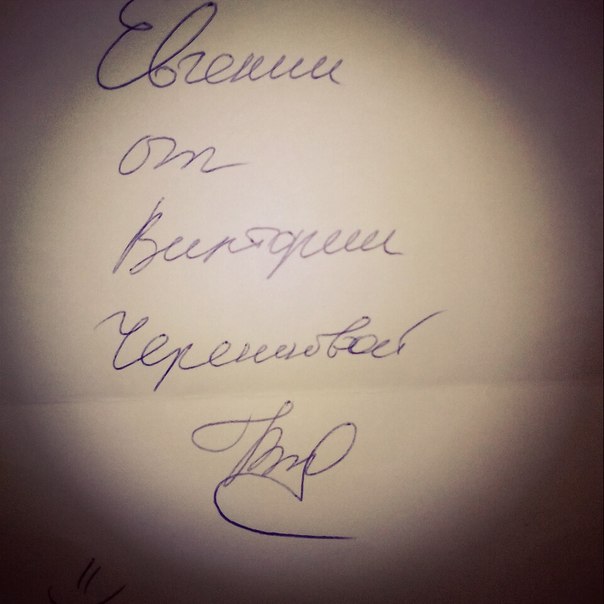 Евгении
от
Виктории
Черенковой